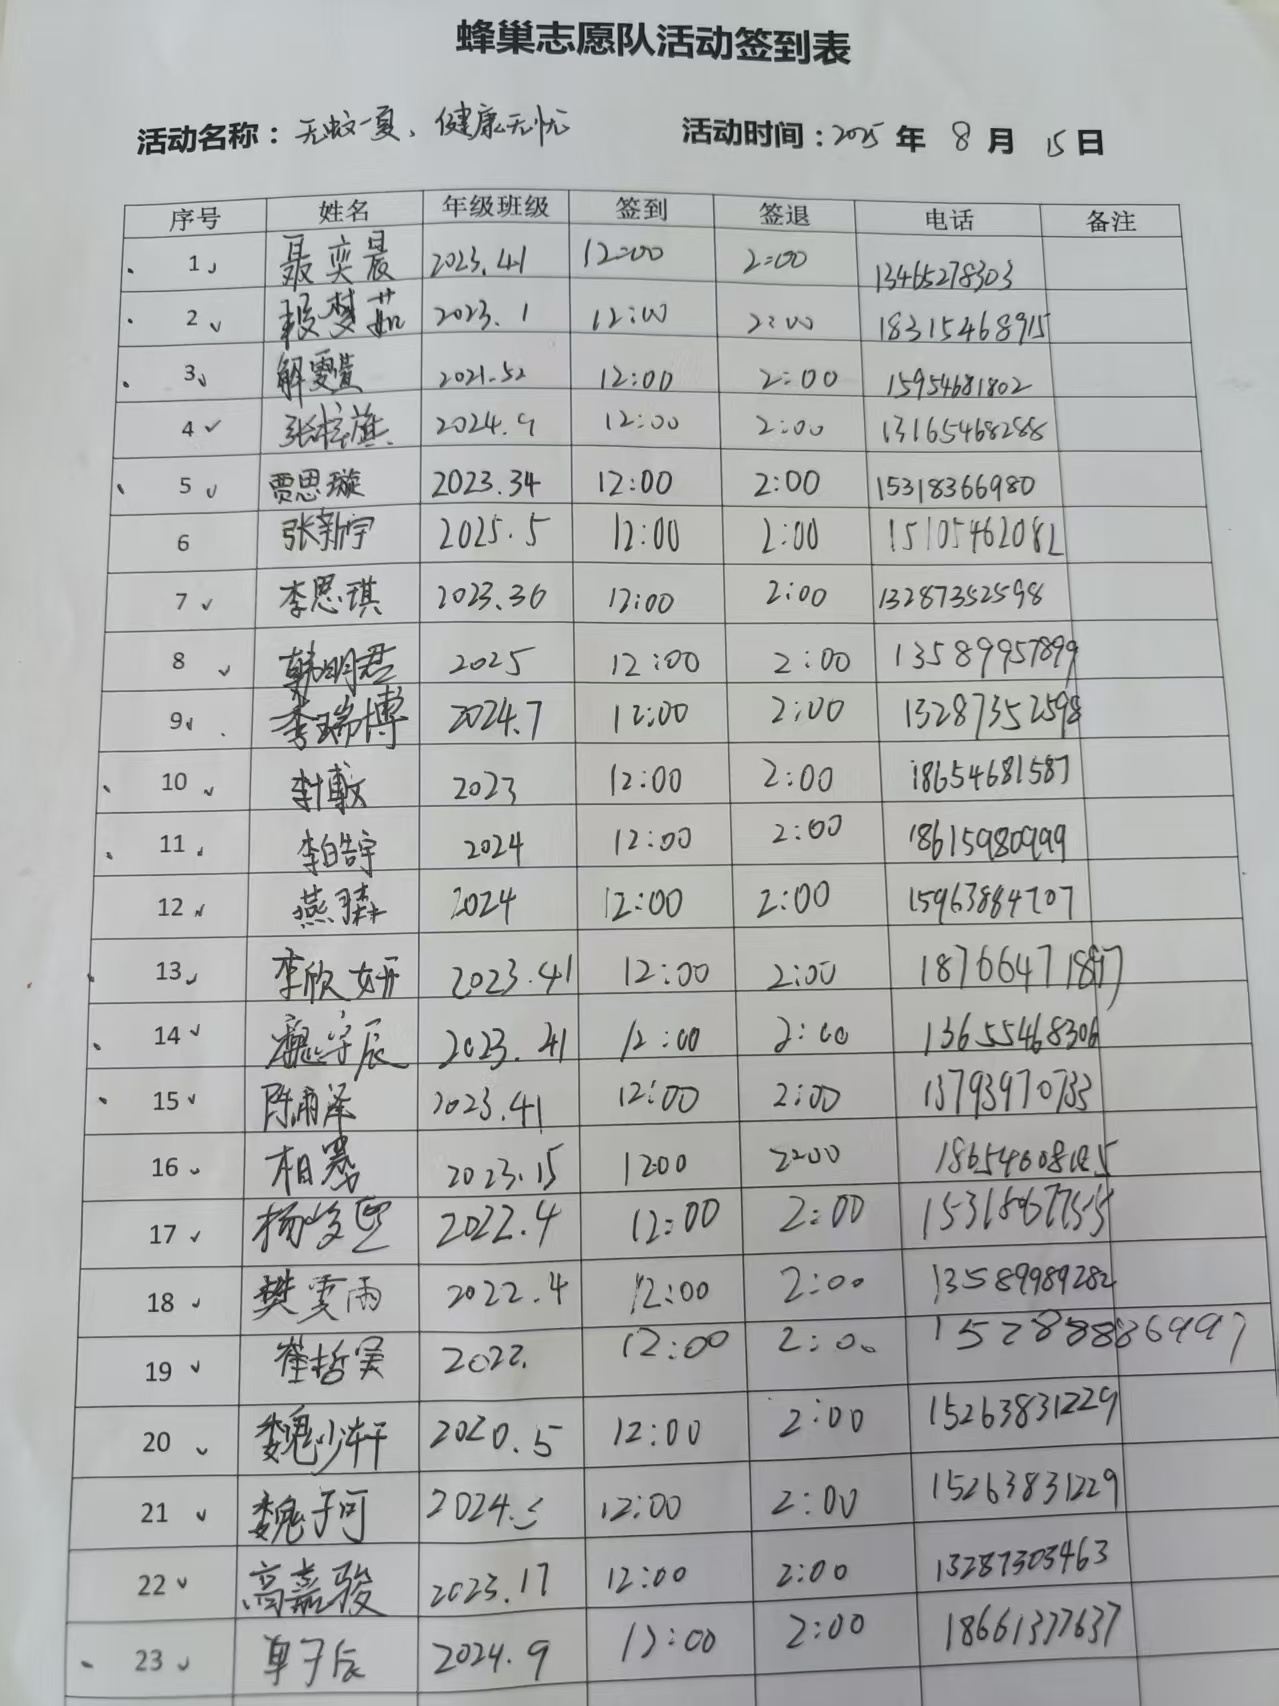 蜂巢志愿队活动签到表
活动名称：无蚊一夏、健康无忧 活动时间：2025年 8 月 15日
序号 姓名 年级班级 签到 签退 电话 备注
1 聂奕晨 2023.41 12:00 2:00 13465278303
2 梦茹 2023.1 12:00 2:00 18315468915
3 解雯萱 2021.52 12:00 2:00 15954681802
4 张梓旗 2024.9 12:00 2:00 13165468288
5 贾思璇 2023.34 12:00 2:00 15318366980
6 张新宇 2025.5 12:00 2:00 15105462082
7 李思琪 2023.36 12:00 2:00 13287352598
8 韩明君 2025 12:00 2:00 13589957899
9 李瑞博 2024.7 12:00 2:00 13287352598
10 李博文 2023 12:00 2:00 18654681587
11 李皓宇 2024 12:00 2:00 18615980999
12 燕 2024 12:00 2:00 15963884707
13 李欣妍 2023.41 12:00 2:00 18766471897
14 魏宇辰 2023.41 12:00 2:00 13655468306
15 陈雨泽 2023.41 12:00 2:00 13793970733
16 相骞 2023.15 1200 2:00
17 杨峻 2022.4 12:00 2:00
18 樊雯雨 2022.4 12:00 2:00 13589989282
19 崔哲昊 2022. 12:00 2:00
20 魏少轩 2020.5 12:00 2:00 15263831229
21 魏子可 2024.5 12:00 2:00 15263831229
22 高嘉骏 2023.17 12:00 2:00 13287303463
23 单子辰 2024.9 12:00 2:00 18661377637